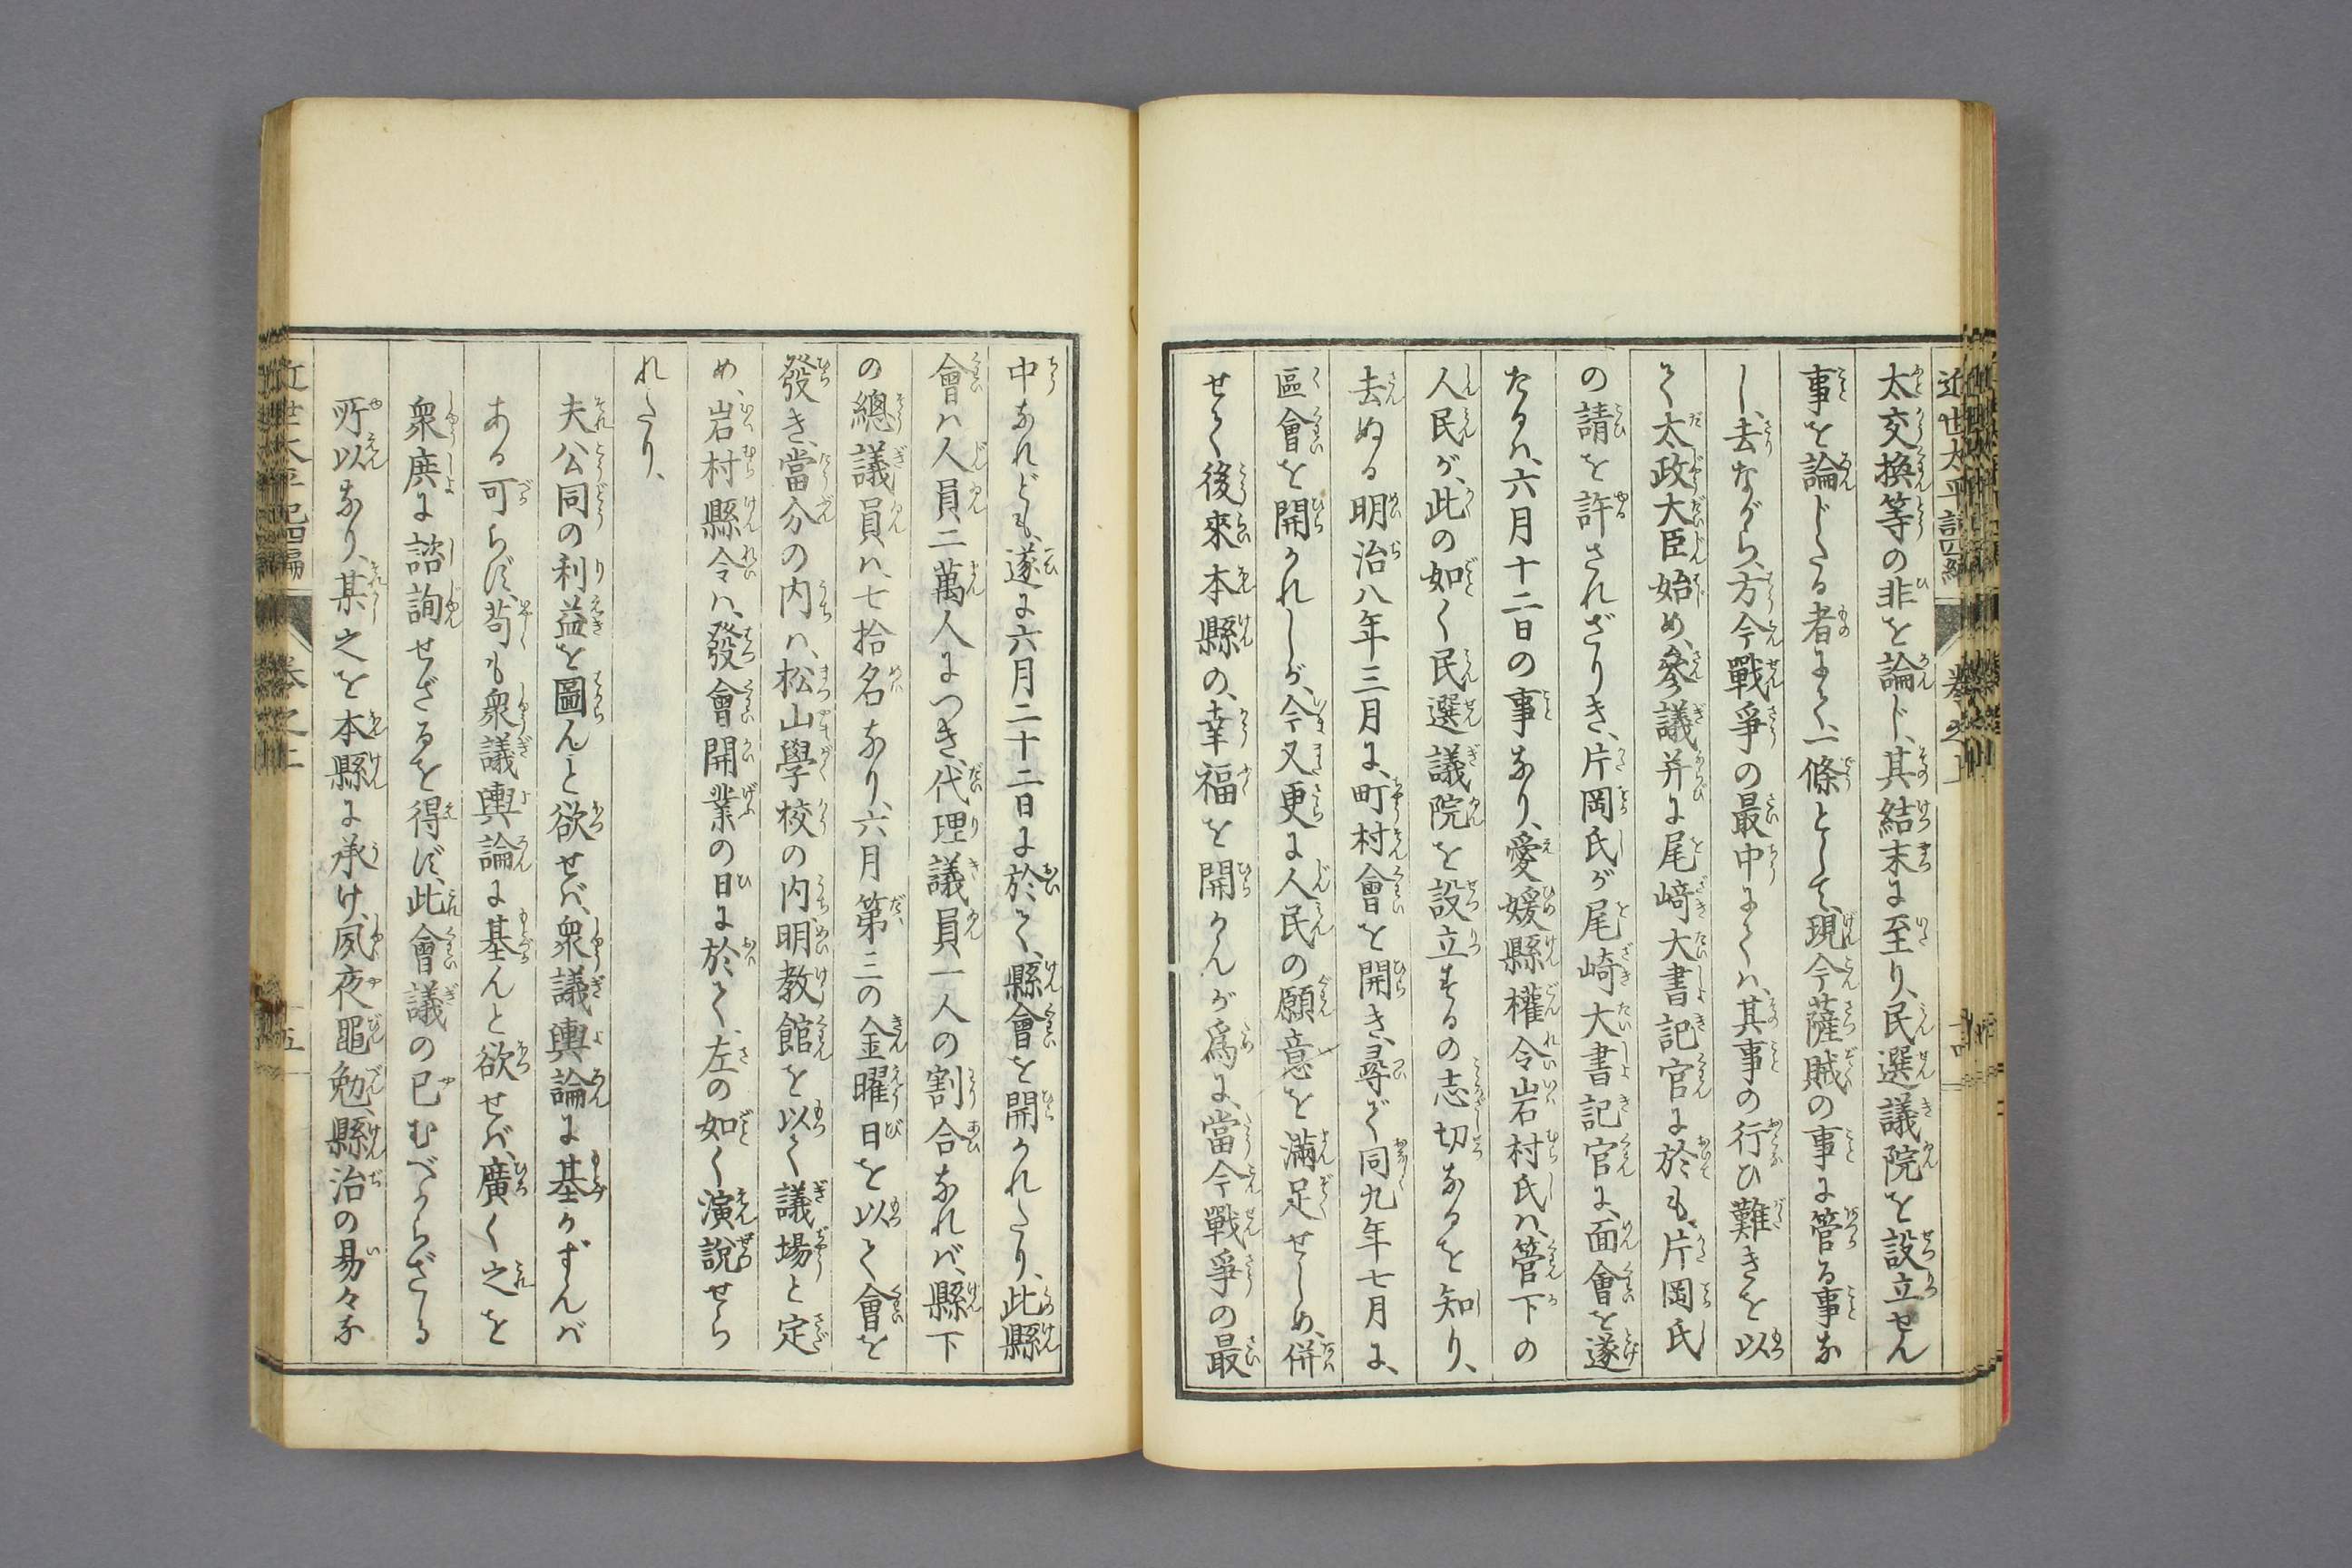 太交換等の非を論じ、其結末に至り、民選議院を設立せん
事を論じたる者にて、一條として、現今薩賊の事に管る事な
し、去ながら、方今戰爭の最中にては、其事の行ひ難きを以
て太政大臣始め、參議并に尾﨑大書記官に於も、片岡氏
の請を許されざりき、片岡氏が尾崎大書記官に、面會を遂
たるハ、六月十二日の事なり、愛媛縣權令岩村氏ハ、管下の
人民が、此の如く民選議院を設立するの志切なるを知り、
去ぬる明治八年三月に、町村會を開き、尋で同九年七月に、
區會を開かれしが、今又更に人民の願意を滿足せしめ、併
せて後來本縣の、幸福を開かんが爲に、當今戰爭の最
中なれども、遂に六月二十二日に於て、縣會を開かれたり、此縣
會ハ人員二萬人につき、代理議員一人の割合なれバ、縣下
の總議員ハ、七拾名なり、六月第三の金曜日を以て會を
發き、當分の内ハ、松山學校の内、明教館を以て議場と定
め、岩村縣令ハ、發會開業の日に於て、左の如く演說せら
れたり、
夫公同の利益を圖んと欲せバ、衆議輿論に基かずんバ
ある可らず、苟も衆議輿論に基んと欲せバ、廣く之を
衆庶に諮詢せざるを得ず、此會議の已むべからざる
所以なり、某之を本縣に承け、夙夜黽勉、縣治の易々な
近世太平記四編 卷之上